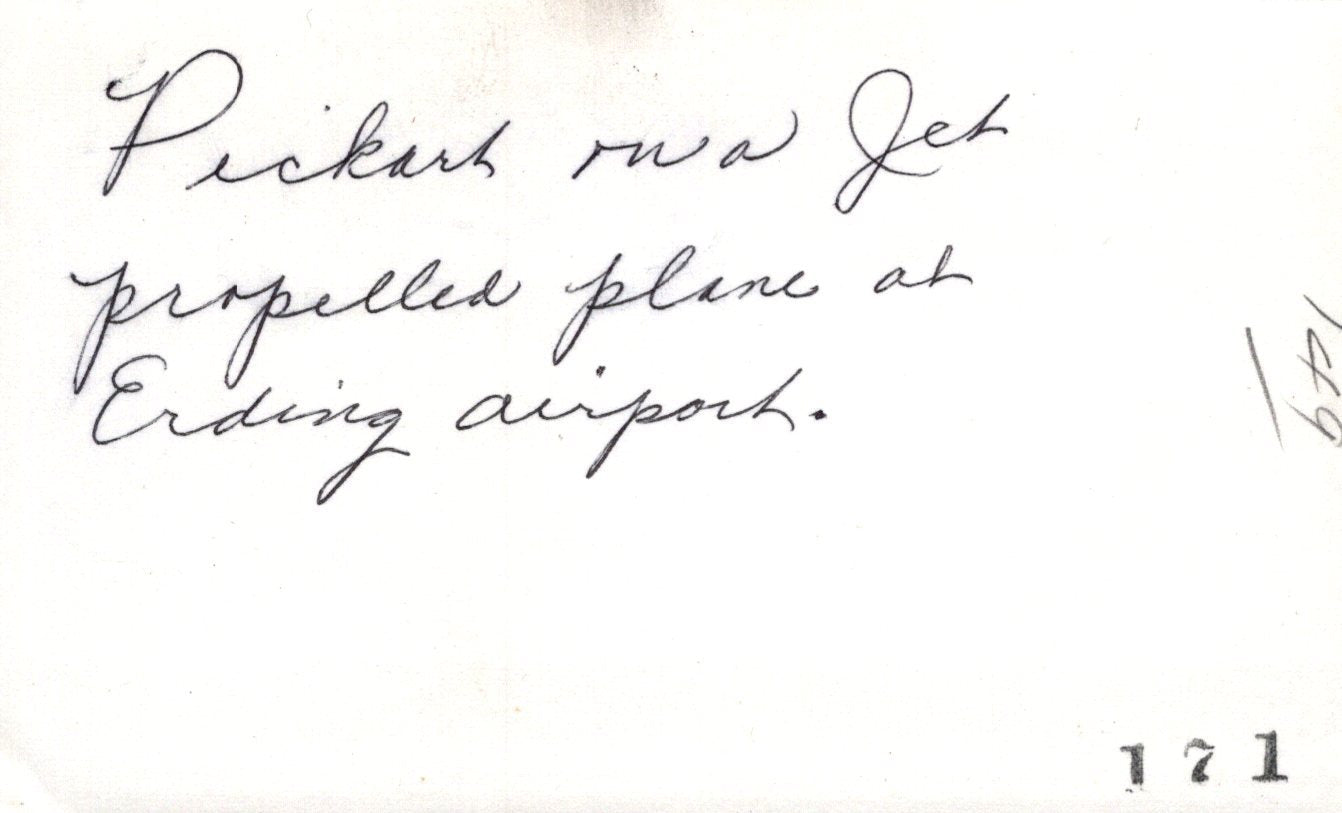 Pickart on a Jet
propelled plane at
Erding airport.
171